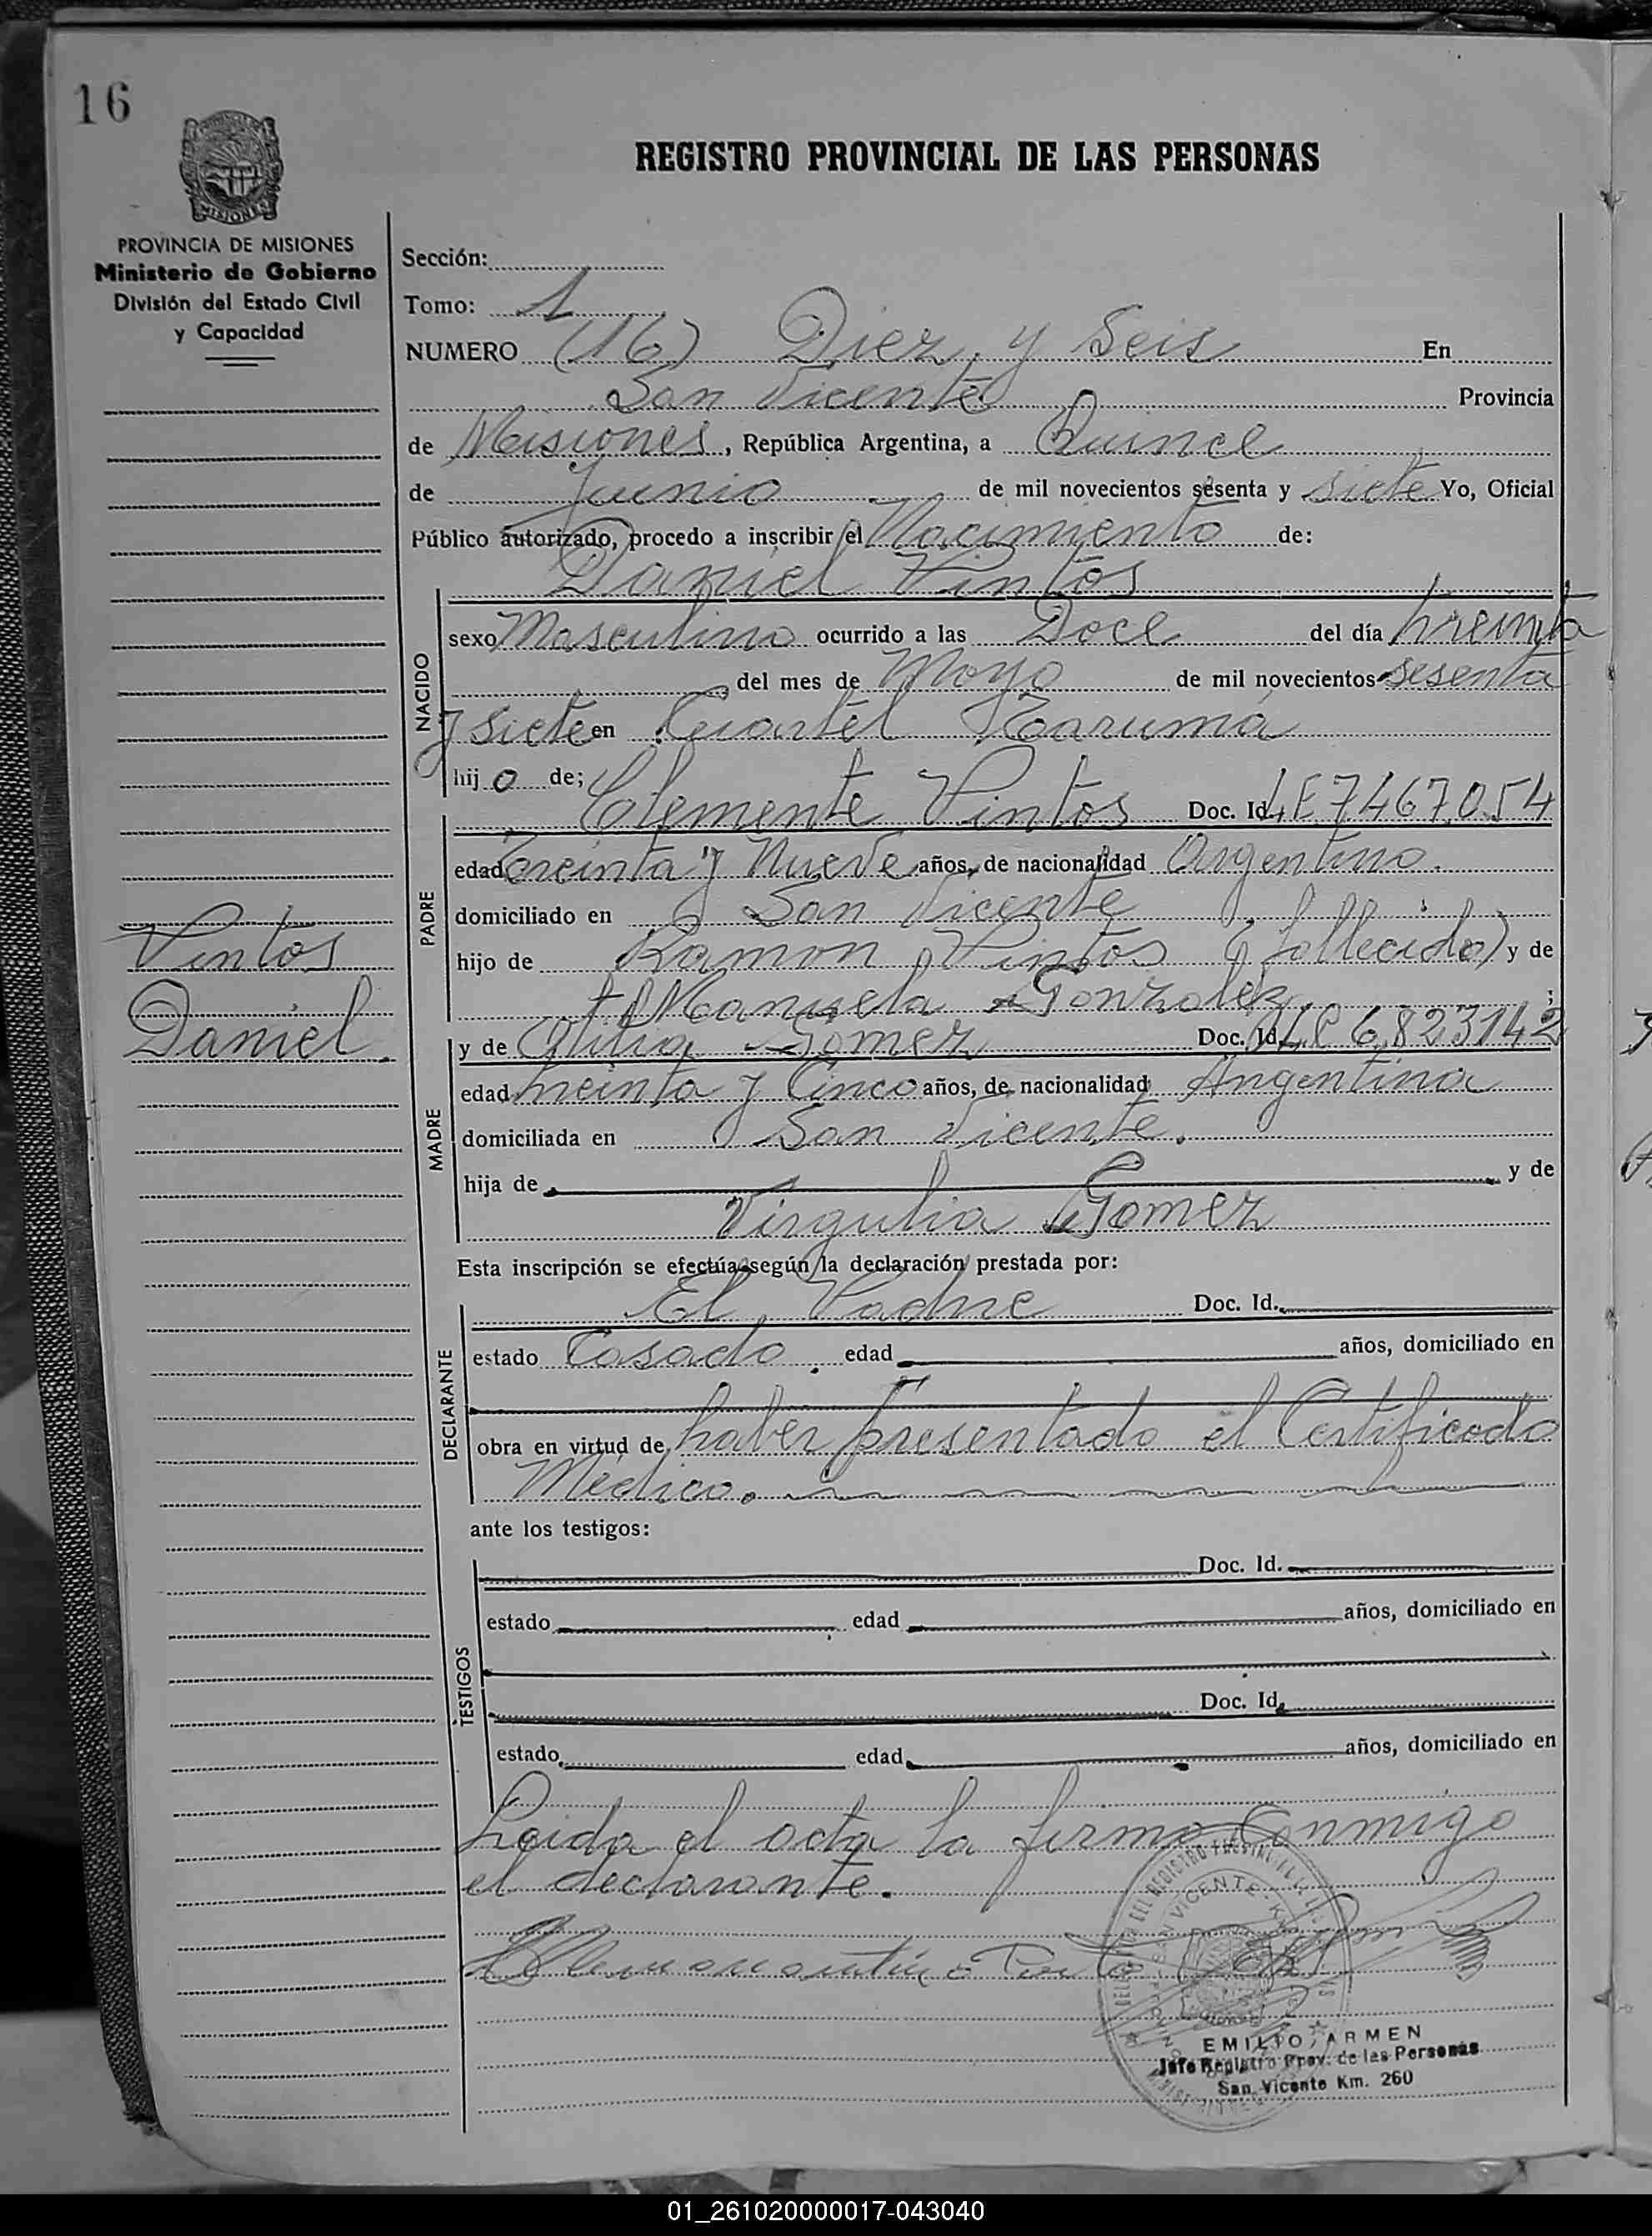 16
REGISTRO PROVINCIAL DE LAS PERSONAS
PROVINCIA DE MISIONES
Ministerio de Gobierno
División del Estado Civil
y Capacidad
Sección:
Tomo: 1
NUMERO (16) Diez y Seis En
San Vicente Provincia
de Misiones, República Argentina, a Quince
de Junio de mil novecientos sesenta y siete Yo, Oficial
Público autorizado, procedo a inscribir el Nacimiento de:
Daniel Pintos
NACIDO
sexo Masculino ocurrido a las Doce del día treinta
del mes de Mayo de mil novecientos sesenta
y siete en Cuartel Tarumá
hijo de;
PADRE
Clemente Pintos Doc. Id. LE 7467.054
edad treinta y Nueve años, de nacionalidad Argentino.
domiciliado en San Vicente
hijo de Ramon Pintos (fallecido) y de
Manuela Gonzalez ;
MADRE
y de Otilia Gomez Doc. Id. LC 6.823142
edad treinta y Cinco años, de nacionalidad Argentina
domiciliada en San Vicente.
hija de y de
Virgulia Gomez
Pintos
Daniel.
Esta inscripción se efectúa según la declaración prestada por:
DECLARANTE
El Padre Doc. Id.
estado Casado edad años, domiciliado en
obra en virtud de haber presentado el Certificado
Médico.
ante los testigos:
TESTIGOS
Doc. Id.
estado edad años, domiciliado en
Doc. Id.
estado edad años, domiciliado en
Leida el acta la firma Conmigo
el declarante.
SAN VICENTE
EMILIO ARMEN
Jefe Registro Prov. de las Personas
San Vicente Km. 260
01_261020000017-043040